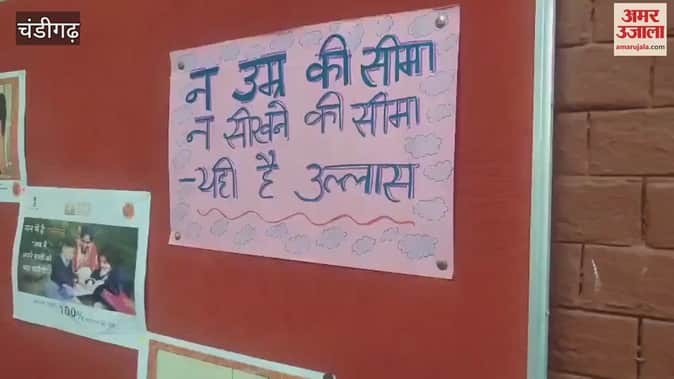 चंडीगढ़
अमर
उजाला
amarujala.com
न उम्र की सीमा
न सीखने की सीमा
-यही है उल्लास
100%